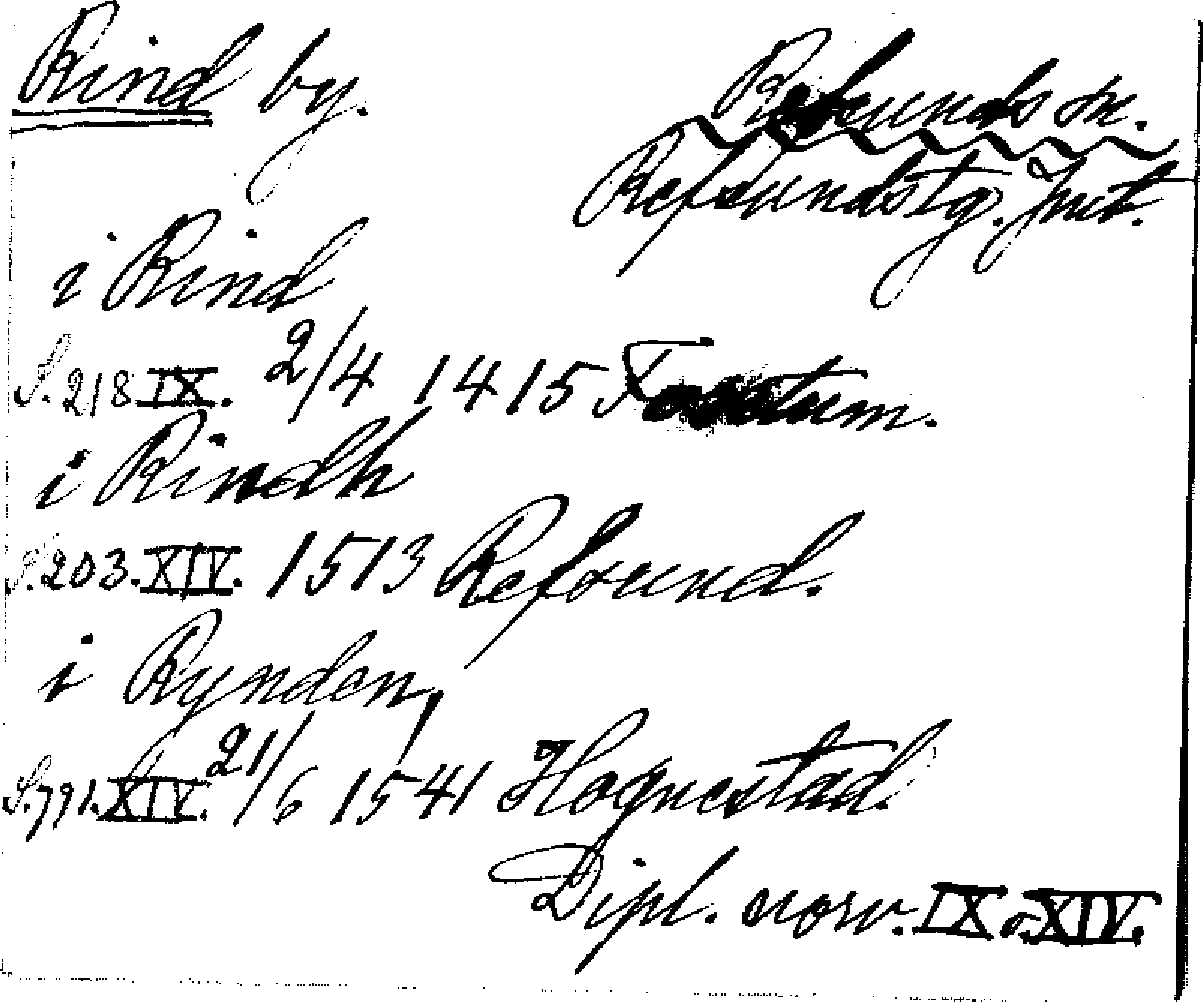 Rind by.
Refsunds sn.
Refsundstg. Jmt.
i Rind
S. 218 IX. 2/4 1415 Fosstum.
i Rindh
S. 203. XIV. 1513 Refsund.
i Rynden,
S. 791. XIV. 21/6 1541 Hognestad.
Dipl. norv. IX o. XIV.